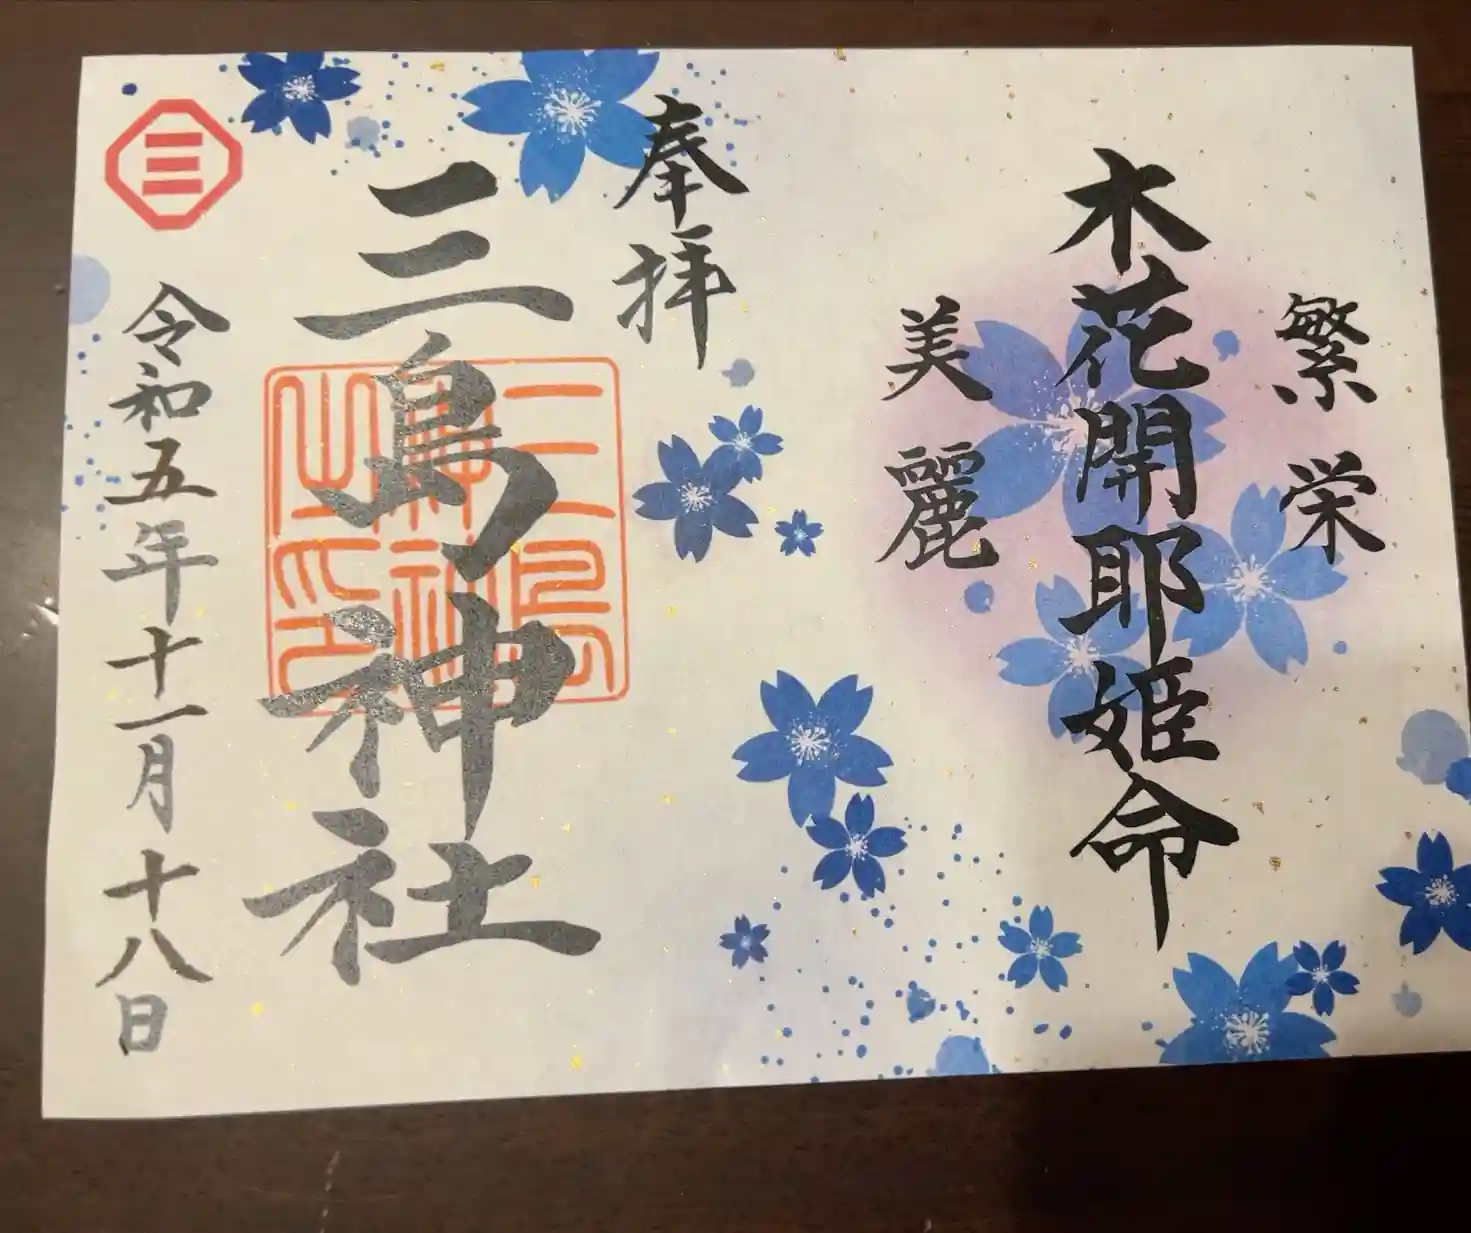 繁栄
木花開耶姫命
美麗
奉拝
三島神社
三島神社之印
三
令和五年十一月十八日